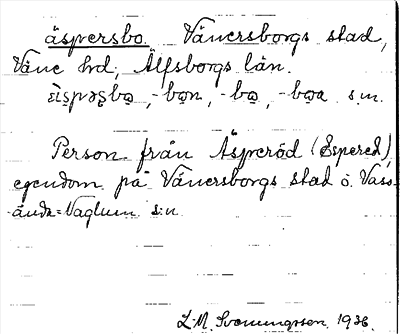 äspersbo Vänersborgs stad,
Väne hrd, Älfsborgs län.
-bo̱n, -bo̱, -bo̱a s.m.
Person från Äsperöd (Espered),
egendom på Vänersborgs stad o. Vass-
ända-Naglum s:n
L-M. Svenungsson 1936